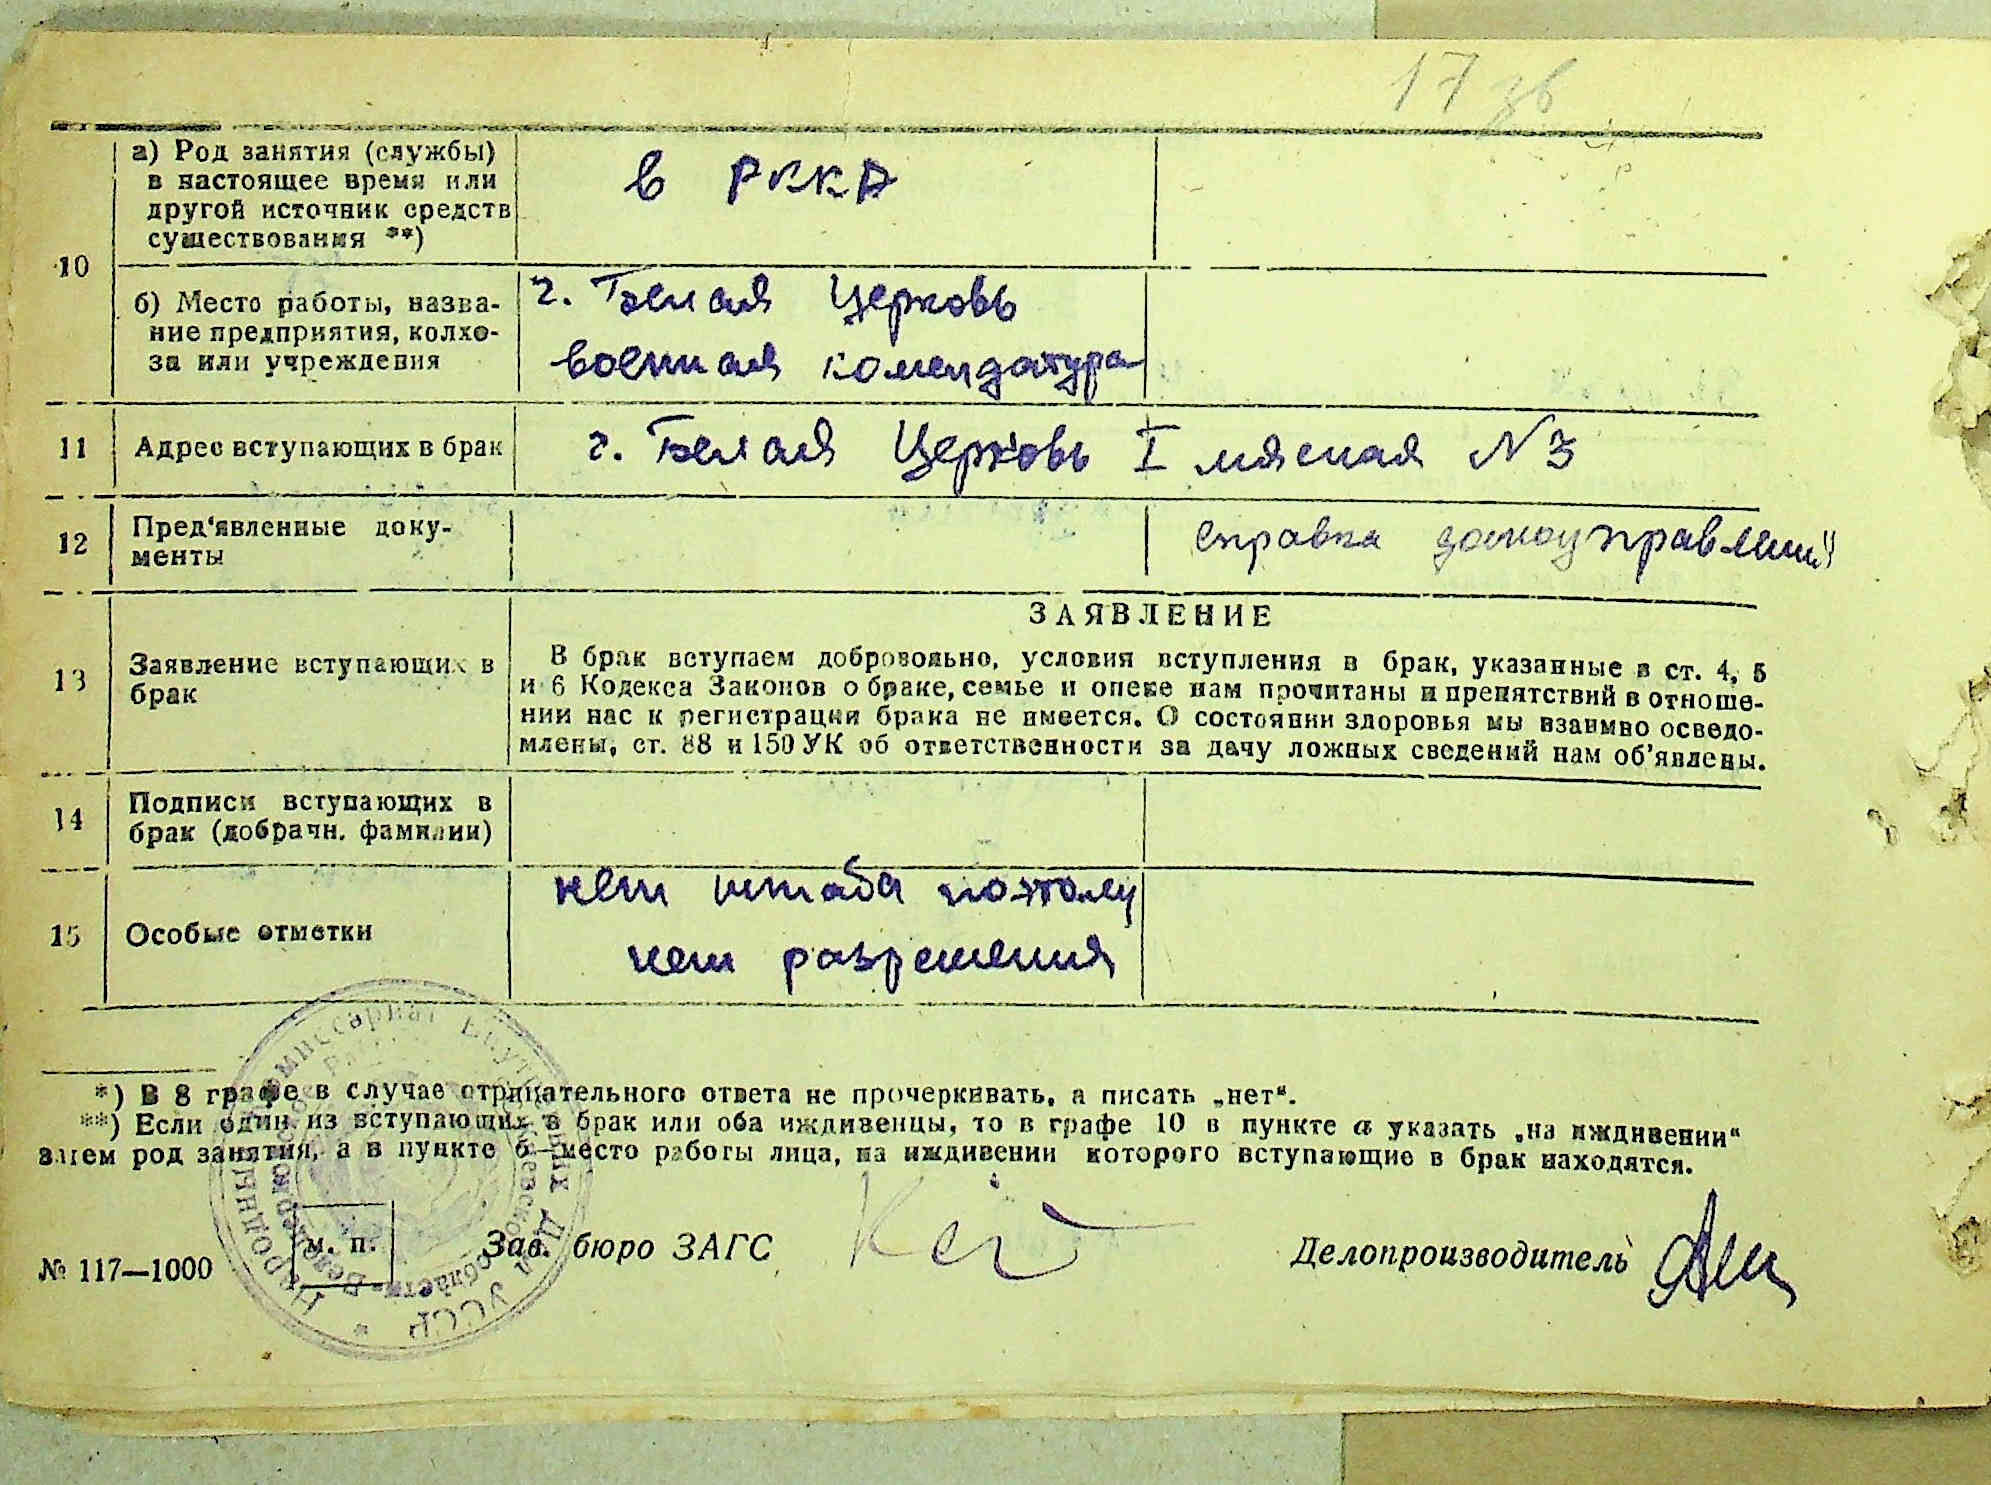 17 зв
а) Род занятия (службы)
в настоящее время или
другой источник средств
существования **)
в РККА
10
б) Место работы, назва-
ние предприятия, колхо-
за или учреждения
г. Белая Церковь
военная комендатура
11
Адрес вступающих в брак
г. Белая Церковь I мясная N 3
12
Пред'явленные доку-
менты
справка домоуправлении
13
Заявление вступающих в
брак
ЗАЯВЛЕНИЕ
В брак вступаем добровольно, условия вступления в брак, указанные в ст. 4, 5
и 6 Кодекса Законов о браке, семье и опеке нам прочитаны и препятствий в отноше-
нии нас к регистрации брака не имеется. О состоянии здоровья мы взаимно осведо-
млены, ст. 88 и 150 УК об ответственности за дачу ложных сведений нам об'явлены.
14
Подписи вступающих в
брак (добрачн. фамилии)
15
Особые отметки
нет штаба поэтому
нет разрешения
*) В 8 графе в случае отрицательного ответа не прочеркивать, а писать „нет“.
**) Если один из вступающих в брак или оба иждивенцы, то в графе 10 в пункте а указать „на иждивении“
затем род занятия, а в пункте б—место работы лица, на иждивении которого вступающие в брак находятся.
№ 117—1000
м. п.
Зав. бюро ЗАГС
Делопроизводитель
Народный Комиссариат Внутренних Дел УССР *